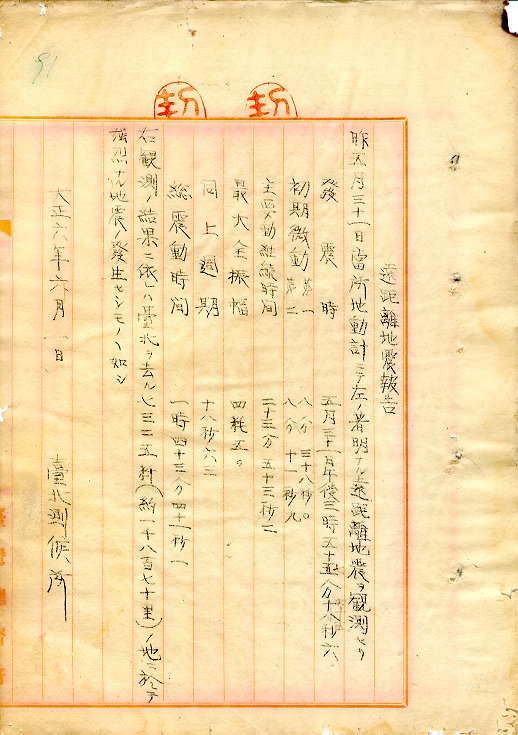 遠距離地震報告
昨五月三十一日當所地動計ニテ左ノ著明ナル遠距離地震ヲ観測セリ
發震時 五月三十一日午後三時五十五分十八秒六
初期微動 第一 八分三十八秒〇
第二 八分十一秒九
主要動継続時間 二十三分五十三秒三
最大全振幅 四粍五〇
同上週期 十八秒六三
総震動時間 一時四十三分四十一秒一
右観測ノ結果ニ依レハ臺北ヲ去ル七三二五粁(約一千八百七十里)ノ地ニ於テ
強烈ナル地震ノ發生セシモノヽ如シ
大正六年六月一日
臺北測候所